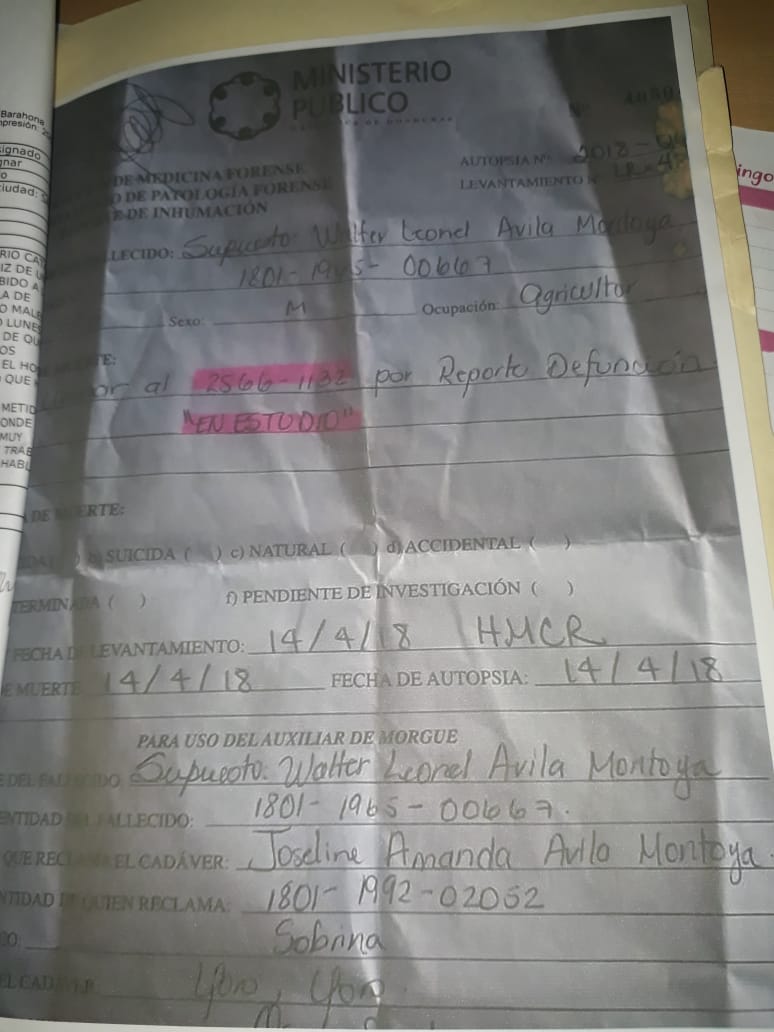 MINISTERIO
PUBLICO
REPUBLICA DE HONDURAS
AUTOPSIA Nº 2018-
LEVANTAMIENTO
DE MEDICINA FORENSE
DE PATOLOGÍA FORENSE
DE INHUMACIÓN
LECIDO: Supuesto: Walter Leonel Avila Montoya
1801-1965-00667
Sexo: M Ocupación: Agricultor
al 2566-1132 por Reporte Defunción
"EN ESTUDIO"
DE MUERTE:
SUICIDA ( ) c) NATURAL ( ) d) ACCIDENTAL ( )
TERMINADA ( ) f) PENDIENTE DE INVESTIGACIÓN ( )
FECHA DE LEVANTAMIENTO: 14/4/18 HMCR
E MUERTE 14/4/18 FECHA DE AUTOPSIA: 14/4/18
PARA USO DEL AUXILIAR DE MORGUE
E DEL FALLECIDO Supuesto: Walter Leonel Avila Montoya
ENTIDAD DEL FALLECIDO: 1801-1965-00667.
QUE RECLAMA EL CADÁVER: Joseline Amanda Avila Montoya.
NTIDAD DE QUIEN RECLAMA: 1801-1992-02052
CO: Sobrina
EL CADAVER Yoro, Yoro.
Barahona
presión:
signado
gnar
o
iudad:
RIO CA
IZ DE
BIDO A
A DE
O MAL
LUNE
DE QU
OS
EL HO
QUE
METID
ONDE
MUY
TRAB
HABI
ingo